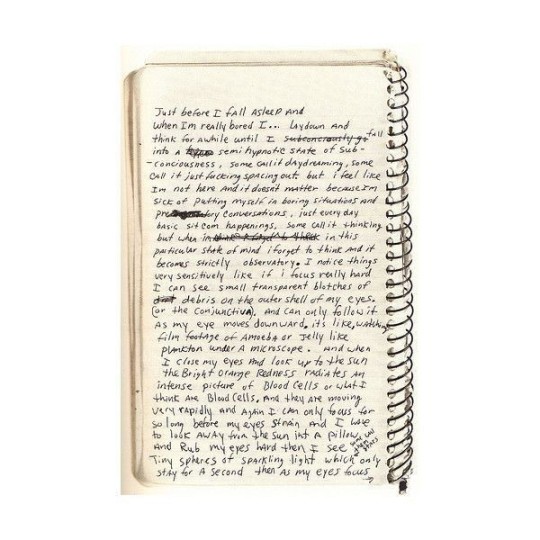 Just before I fall Asleep And
when I'm really bored I... laydown And
think for awhile until I subconciously go fall
into a semi hypnotic state of sub-
-conciousness, some call it daydreaming, some
call it just fucking spacing out but i feel like
I'm not here And it doesnt matter because I'm
sick of putting myself in boring situations and
conversations, just every day
basic sit com happenings, some call it thinking
but when in in this
particular state of mind i forget to think And it
becomes strictly observatory. I notice things
very sensitively like if i focus really hard
I can see small transparent blotches of
debris on the outer shell of my eyes.
(or the conjunctiva). And can only follow it
As my eye moves downward, its like, watching
film footage of Amoeba or Jelly like
plankton under A microscope. And when
I close my eyes And look up to the sun
the Bright orange Redness radiates An
intense picture of Blood cells or what I
think are Blood cells. And they are moving
very rapidly and Again I can only focus for
so long before my eyes strain and I have
to look Away from the sun into A pillow
And Rub my eyes hard then I see some call them stars
Tiny spheres of sparkling light which only
stay for A second then As my eyes focus
→